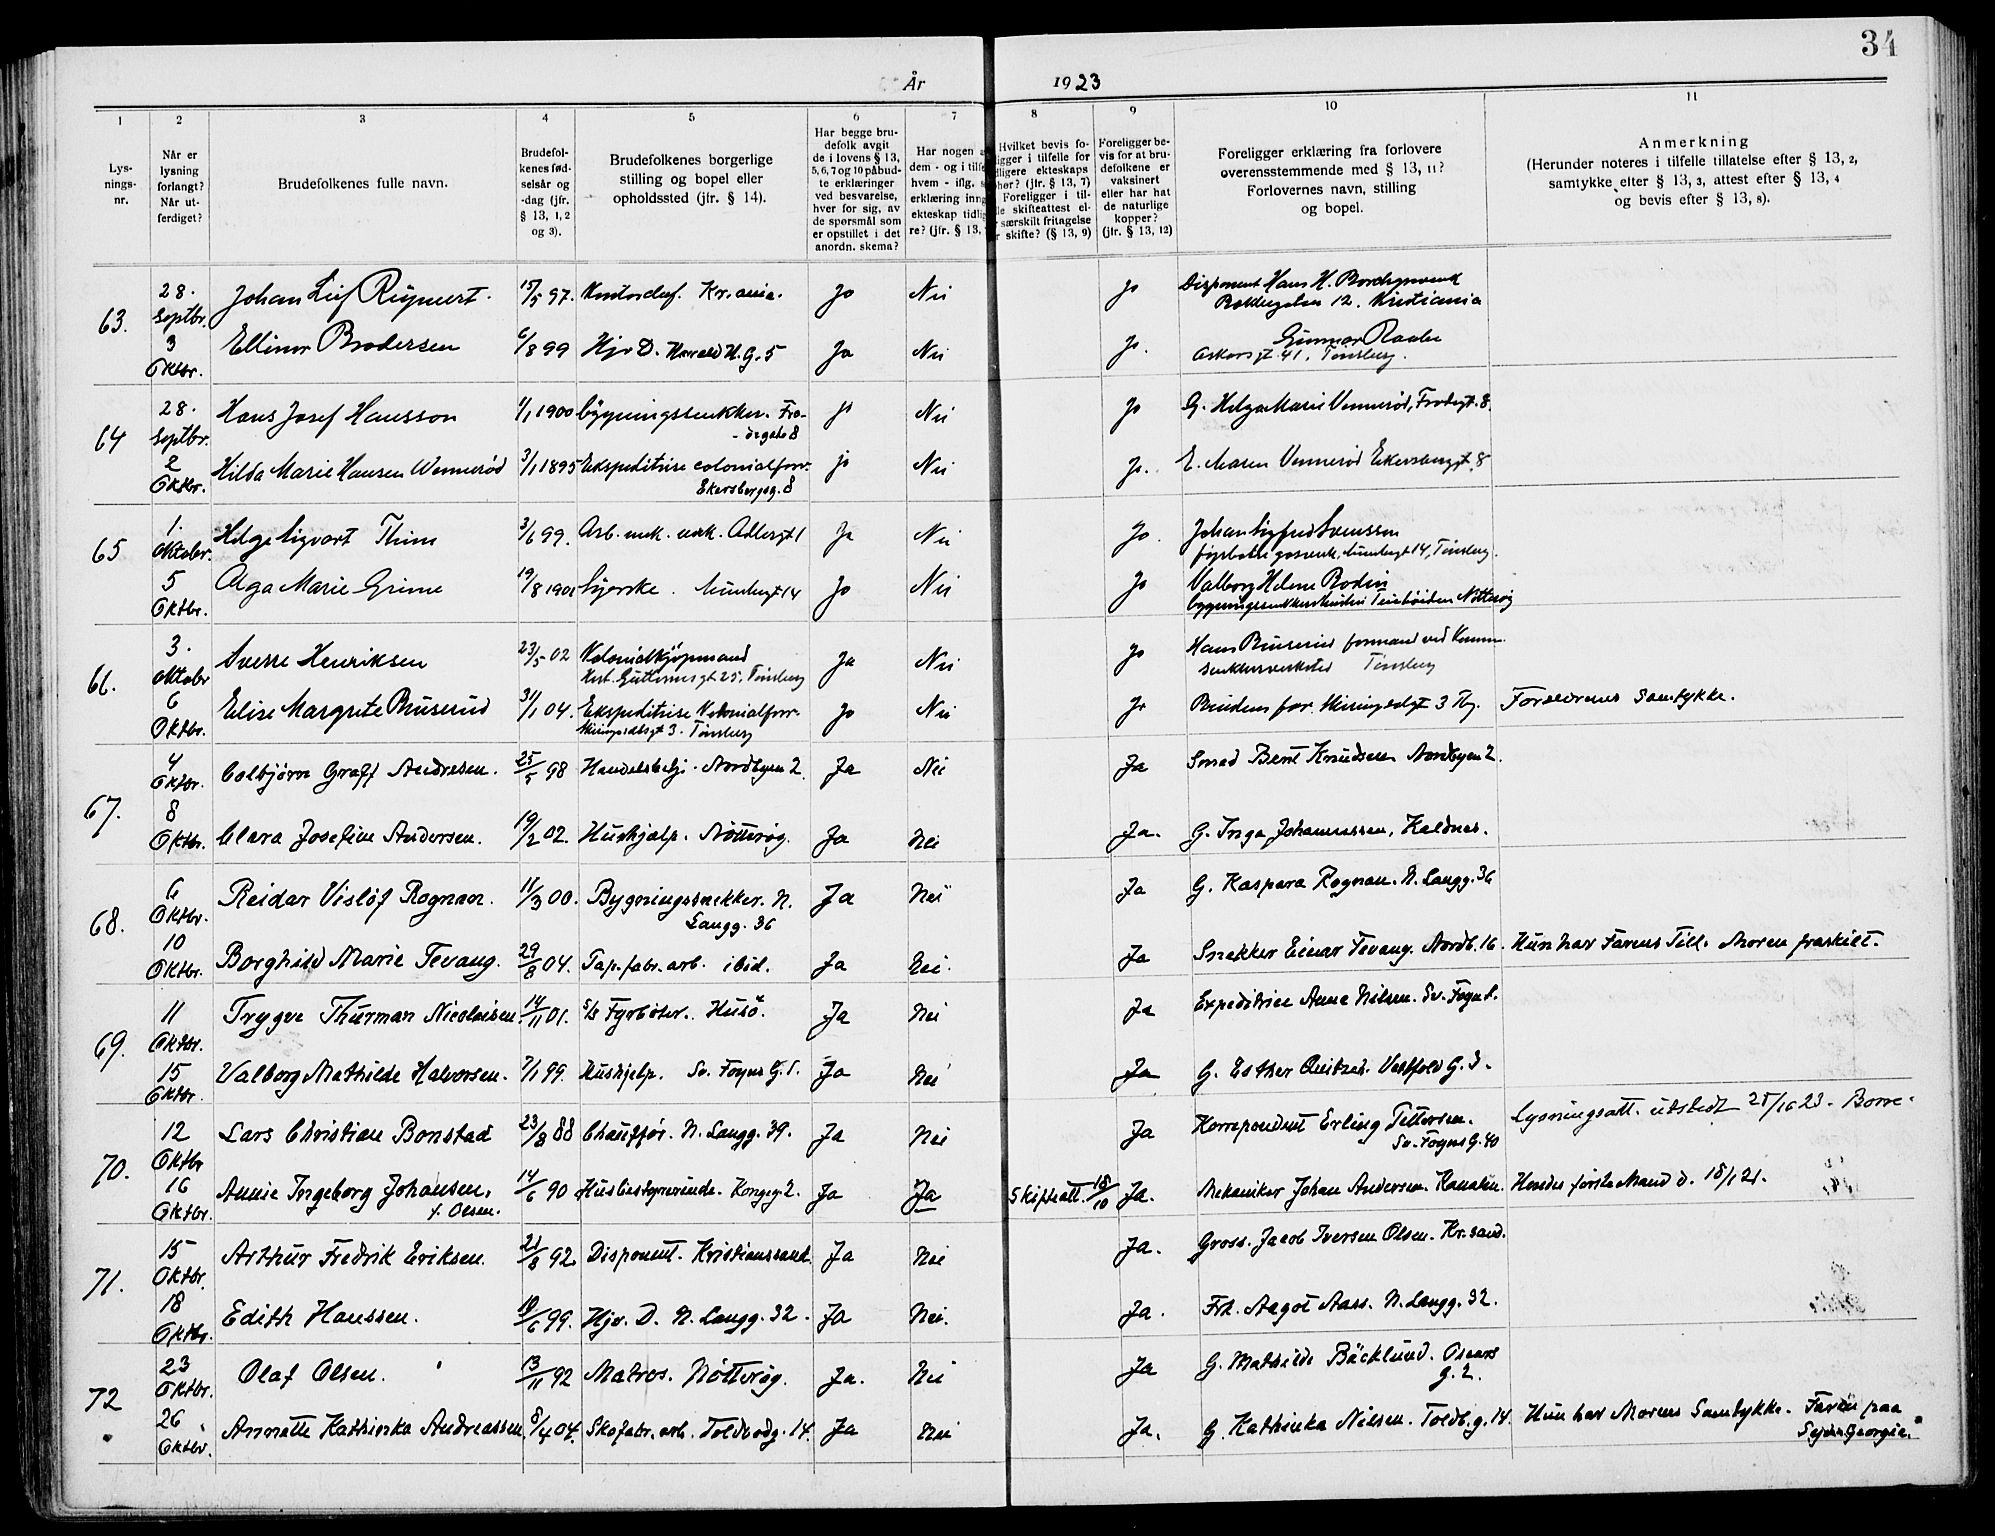 34
År 1923
1 2 3 4 5 6 7 8 9 10 11
Lys-
nings-
nr.
Når er
lysning
forlangt?
Når ut-
ferdiget?
Brudefolkenes fulle navn.
Brudefol-
kenes fød-
selsår og
-dag (jfr.
§ 13, 1, 2
og 3).
Brudefolkenes borgerlige
stilling og bopel eller
opholdssted (jfr. § 14).
Har begge bru-
defolk avgit
de i lovens § 13,
5, 6, 7 og 10 påbud-
te erklæringer
ved besvarelse,
hver for sig, av
de spørsmål som
er opstillet i det
anordn. skema?
Har nogen a
dem - og i tilfe
hvem - iflg. s
erklæring inng
ekteskap tidlig
re? (jfr. § 13,
Hvilket bevis fo-
ligger i tilfelle for
dligere ekteskaps
phør? (jfr. § 13, 7)
Foreligger i til-
le skifteattest el-
r særskilt fritagelse
r skifte? (§ 13, 9)
Foreligger be-
vis for at bru-
defolkene er
vaksinert
eller har hat
de naturlige
kopper?
(jfr. § 13, 12)
Foreligger erklæring fra forlovere
overensstemmende med § 13, 11?
Forlovernes navn, stilling
og bopel.
Anmerkning
(Herunder noteres i tilfelle tillatelse efter § 13, 2,
samtykke efter § 13, 3, attest efter § 13, 4
og bevis efter § 13, 8).
63. 28. Septbr. Johan Leif 15/5 97. Kr.ania. Jo Nei Jo Disponent Hans H.
12. Kristiania
3 Oktbr. Ellinor Brodersen 6/8 99 Hjv D. Harald H. G. 5 Ja Nei Jo. Gunnar Raabe
41, Tönsberg.
64 28. Septbr. Hans Josef Hansson 1/1 1900 bygningssnekker. Fro-
degate 8 Jo Nei Jo G. Helga Marie Vennerød, Frodegt. 8.
2 Oktbr. Hilda Marie Hansen Wennerød 3/1 1895 Ekspeditrise colonialforr.
Ekersbergsg. 8 jo Nei Jo. E. Maren Vennerød Ekersbergt. 8
65 1. Oktober. Helge Sigvart Thim 3/6 99. Arb. mek. verk. 1 Ja Nei Jo. Johan Sigfred Svensson
gasverk. 14, Tönsberg.
5 Oktbr. Olga Marie Grime 19/8 1901 Syerske. 14 Jo Nei Jo Valborg Helene Bodin
Nötterög
66. 3. Oktober Sverre Henriksen 23/5 02 Kolonialkjøpmand
25, Tönsberg Ja Nei Jo Hans Buserud formand ved Kamm.
snekkerverksted Tönsberg
6 Oktbr. Elise Margrete Buserud 31/1 04. Ekspeditrise Kolonialforr.
Skiringsalsgt 3. Tönsberg Jo Nei Jo Brudens far. Skiringsalgt 3 Tbg. Foreldrenes Samtykke.
67. 4 Oktbr. Colbjörn Graff Andresen. 25/5 98 Handelsbetj. Nordbyen 2. Ja Nei Ja Smed Bent Knudsen Nordbyen 2.
8 Oktbr. Clara Josefine Andersen. 19/2 02. Hushjælp. Nötterög. Ja Nei Ja. G. Inga Johannessen, Kaldnes.
68. 6 Oktbr. Reidar Vislöf Rognan. 11/3 00. Bygningssnekker. N.
Langg. 36 Ja Nei Ja G. Kaspara Rognan. N. Langg. 36
10 Oktbr. Borghild Marie Tevang. 29/8 04. Tap.fabr.arb. ibid. Ja Nei. Ja Snekker Einar Tevang. Nordb. 16. Hun har Farens Till. Moren fraskilt.
69. 11 Oktbr. Trygve Thurman Nicolaisen. 14/11 01. S/s Fyrböter. Husö. Ja Nei Ja Expeditrice Anna Nilsen. Sv. Foyn 1.
15 Oktbr. Valborg Mathilde Halvorsen. 7/1 99. Hushjelp. Sv. Foyns G. 1. Ja Nei Ja G. Esther Quitzah. Vestfold G. 3.
70. 12 Oktbr Lars Christian Bonstad 23/8 88 Chauffør. N. Langg. 39. Ja Nei Ja Korrepondent Erling Pettersen.
Sv. Foyns G. 40 Lysningsatt. utstedt 25/10 23. Borre.
16 Oktbr. Annie Ingeborg Johansen,
f. Olsen. 14/6 90 Husbestyrerinde. Kongeg. 2. Ja Ja Skifteatt. 18/10 Ja. Mekaniker Johan Andersen. Kanalen. Hendes första Mand d. 18/1 21.
71. 15 Oktbr. Arthur Fredrik Eriksen. 21/8 92. Disponent. Kristianssand. Ja Nei Ja. Gross. Jacob Iversen Olsen. Kr.sand.
18 Oktbr. Edith Hanssen. 10/6 99. Hjv. D. N. Langg. 32. Ja Nei. Ja. Frk. Aagot Aass. N. Langg. 32.
72 23 Oktbr. Olaf Olsen. 13/11 92 Matros. Nötterög. Ja. Nei Ja G. Mathilde Bäcklund. Oscars
G. 2.
26 Oktbr. Annette Kathinka Andreassen. 8/4 04. Skofabr.arb. Toldbodg. 14. Ja Nei Ja. G. Kathinka Nilsen. Toldb.g. 14. Hun har Morens Samtykke. Faren paa
Syd Georgia.